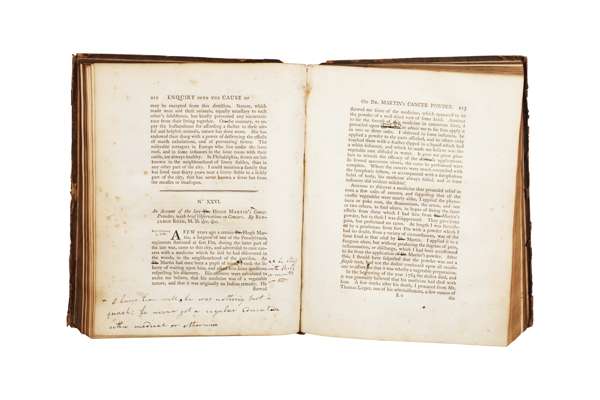 212 ENQUIRY INTO THE CAUSE OF
may be excepted from this direction. Nature, which
made man and their animals, equally necessary to each
other's subsistence, has kindly prevented any inconveni-
ence from their living together. On contrary, to re-
pay the husbandman for affording a shelter to these use-
ful and helpless animals, nature has done more. She has
endowed their dung with a power of destroying the effects
of marsh exhalations, and of preventing fevers. The
miserable cottagers in Europe who live under the same
roof, and in some instances in the same room with their
cattle, are always healthy. In Philadelphia, fevers are less
known in the neighbourhood of livery stables, than in
any other part of the city. I could mention a family that
has lived near thirty years near a livery stable in a sickly
part of the city, that has never known a fever but from
the measles or
N° XXVI.
An Account of the late HUGH MARTIN'S Cancer
Powder, with brief Observations on Cancers. By BEN-
JAMIN RUSH, M. D. &c. &c.
A FEW years ago a certain Hugh Mar-
tin, a surgeon of one of the Pennsylvania
regiments stationed at fort Pitt, during the latter part of
the late war, came to this city, and advertised to cure can-
cers with a medicine which he said he had discovered in
the woods, in the neighbourhood of the garrison. As
Martin had once been a pupil of mine I took the li-
berty of waiting upon him, and asked him some questions
respecting his discovery. His answers were calculated to
make me believe, that his medicine was of a vegetable
nature, and that it was originally an Indian remedy. He
shewed
he was nothing but a
quack; he never got a regular Education
either medical or otherwise
ON DR. MARTIN'S CANCER POWDER. 213
shewed me some of the medicine, which appeared to be
the powder of a well dried root of some kind. Anxious
to see the success of this medicine in cancerous sores, I
prevailed upon to admit me to see him apply it
in two or three cases. I observed in some instances, he
applied a powder to the parts affected, and in others only
touched them with a feather dipped in a liquid which had
a white sediment, and which he made me believe was the
vegetable root diffused in water. It gave me great plea-
sure to witness the efficacy of the applications.
In several cancerous ulcers, the cures he performed were
complete. Where the cancers were much connected with
the lymphatic system, or accompanied with a scrophulous
habit of body, his medicine always failed, and in some
instances did evident mischief.
Anxious to discover a medicine that promised relief in
even a few cases of cancers, and supposing that all the
caustic vegetables were nearly alike, I applied the phyto-
lacca or poke root, the stramonium, the arum, and one
or two others, to foul ulcers, in hopes of seeing the same
effects from them which I had seen from Martin's
powder, but in these I was disappointed. They gave
pain, but performed no cures. At length I was furnish-
ed by a gentleman from fort Pitt with a powder which I
had no doubt, from a variety of circumstances, was of the
same kind as that used by Martin. I applied it to a
fungous ulcer, but without producing the degree of pain,
inflammation, or discharge, which I had been accustomed
to see from the application of Martin's powder. After
this, I should have suspected that the powder was not a
simple root, had not the doctor continued upon all occasi-
ons to assure me that it was wholly a vegetable preparation.
In the beginning of the year 1784 the doctor died, and
it was generally believed that his medicine had died with
him. A few weeks after his death, I procured from Mr.
Thomas Lieper, one of his administrators, a few ounces of
the